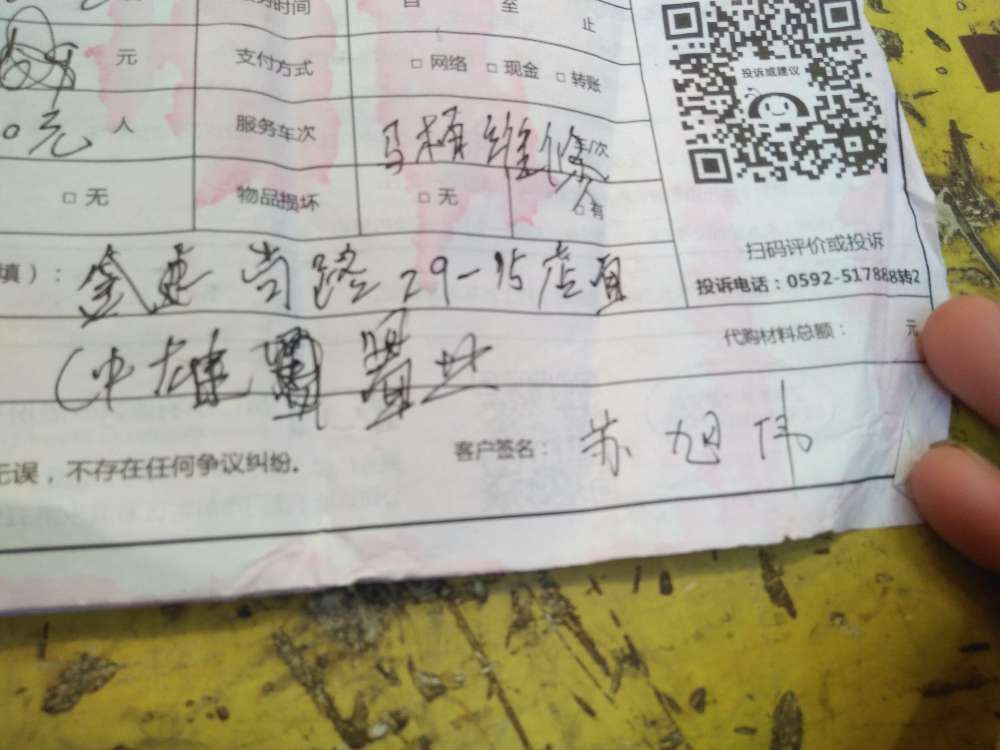 服务时间 自 至 止
元 支付方式 □ 网络 □ 现金 □ 转账
投诉或建议
0元 人 服务车次 马桶维修 车次
□ 无 物品损坏 □ 无 □ 有
扫码评价或投诉
填）： 金 尚路29-15店面
投诉电话：0592-517888转2
代购材料总额： 元
无误，不存在任何争议纠纷。 客户签名： 苏旭伟